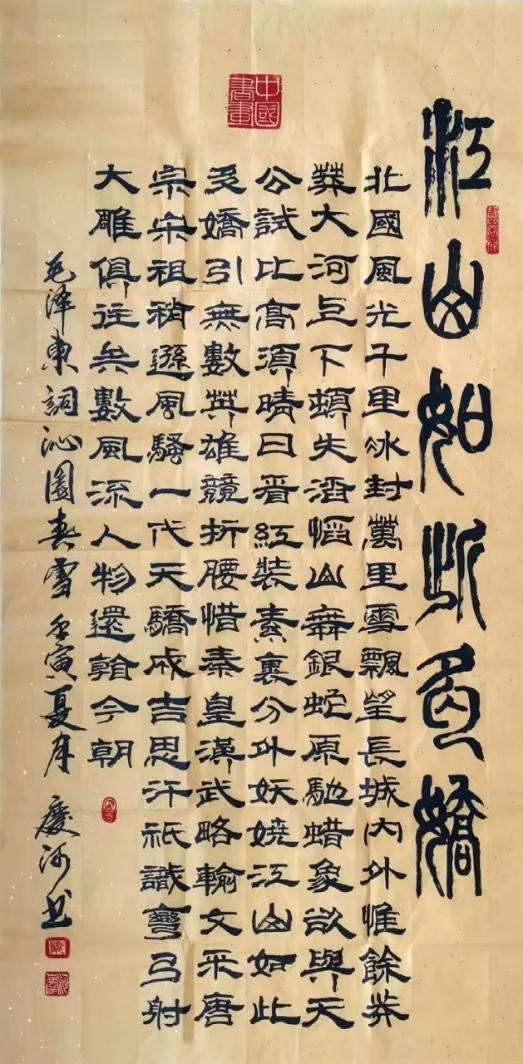 中國書畫
江山如此多嬌
北國風光千里冰封萬里雪飄望長城內外惟餘莽
莽大河上下頓失滔滔山舞銀蛇原馳蜡象欲與天
公試比高須晴日看紅裝素裹分外妖嬈江山如此
多嬌引無數英雄競折腰惜秦皇漢武略輸文采唐
宗宋祖稍遜風騷一代天驕成吉思汗祇識彎弓射
大雕俱往矣數風流人物還看今朝
毛泽東詞沁園春雪 壬寅夏月 慶河书